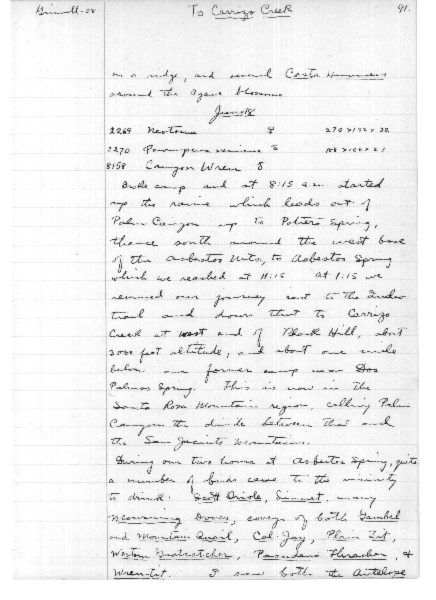 Grinnell-08 To Carrizo Creek 91.
on a ridge, and several Costa Hummers
around the Agave blossoms
June 18
2269 Neotoma ♀ 270 × 132 × 32
2270 Peromyscus eremicus ♀
8158 Canyon Wren ♂
Broke camp and at 8:15 a.m. started
up the ravine which leads out of
Palm Canyon up to Potrero Spring,
thence south around the west base
of the Asbestos Mts, to Asbestos Spring
which we reached at 11:15 At 1:15 we
resumed our journey east to the Indian
trail and down that to Carrizo
Creek at west end of Black Hill, about
3000 feet altitude, and about one mile
below our former camp near Dos
Palmos Spring. This is now in the
Santa Rosa Mountains region, calling Palm
Canyon the divide between that and
the San Jacinto mountains.
During our two hours at Asbestos Spring, quite
a number of birds came to the vicinity
to drink: Scott Oriole, Linnet, many
Mourning Doves, coveys of both Gambel
and Mountain Quail, Cal. Jay, Plain Tit,
Western Gnatcatcher, Pasadena Thrasher, &
Wren-tit. I saw both the Antelope